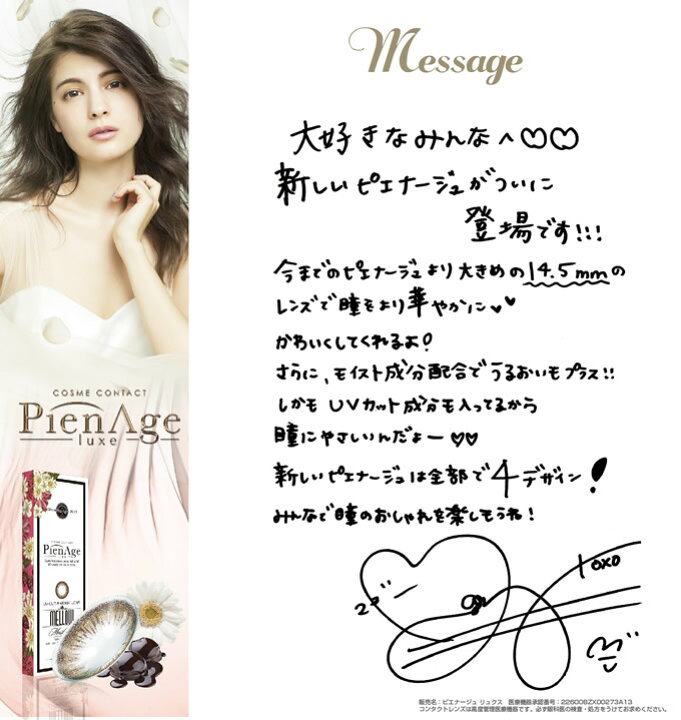 Message
大好きなみんなへ♡♡
新しいピエナージュがついに
登場です!!!
今までのピエナージュより大きめの14.5mmの
レンズで瞳をより華やかに♥♥
かわいくしてくれるよ!
さらに、モイスト成分配合でうるおいもプラス!!
しかもUVカット成分も入ってるから
瞳にやさしいんだよー♡♡
新しいピエナージュは全部で4デザイン!
みんなで瞳のおしゃれを楽しもうね!
xoxo
COSME CONTACT
PienAge
luxe
COSME CONTACT
PienAge
MELLOW
販売名：ピエナージュ リュクス 医療機器承認番号：22600BZX00273A13
コンタクトレンズは高度管理医療機器です。必ず眼科医の検査・処方をうけてお求めください。